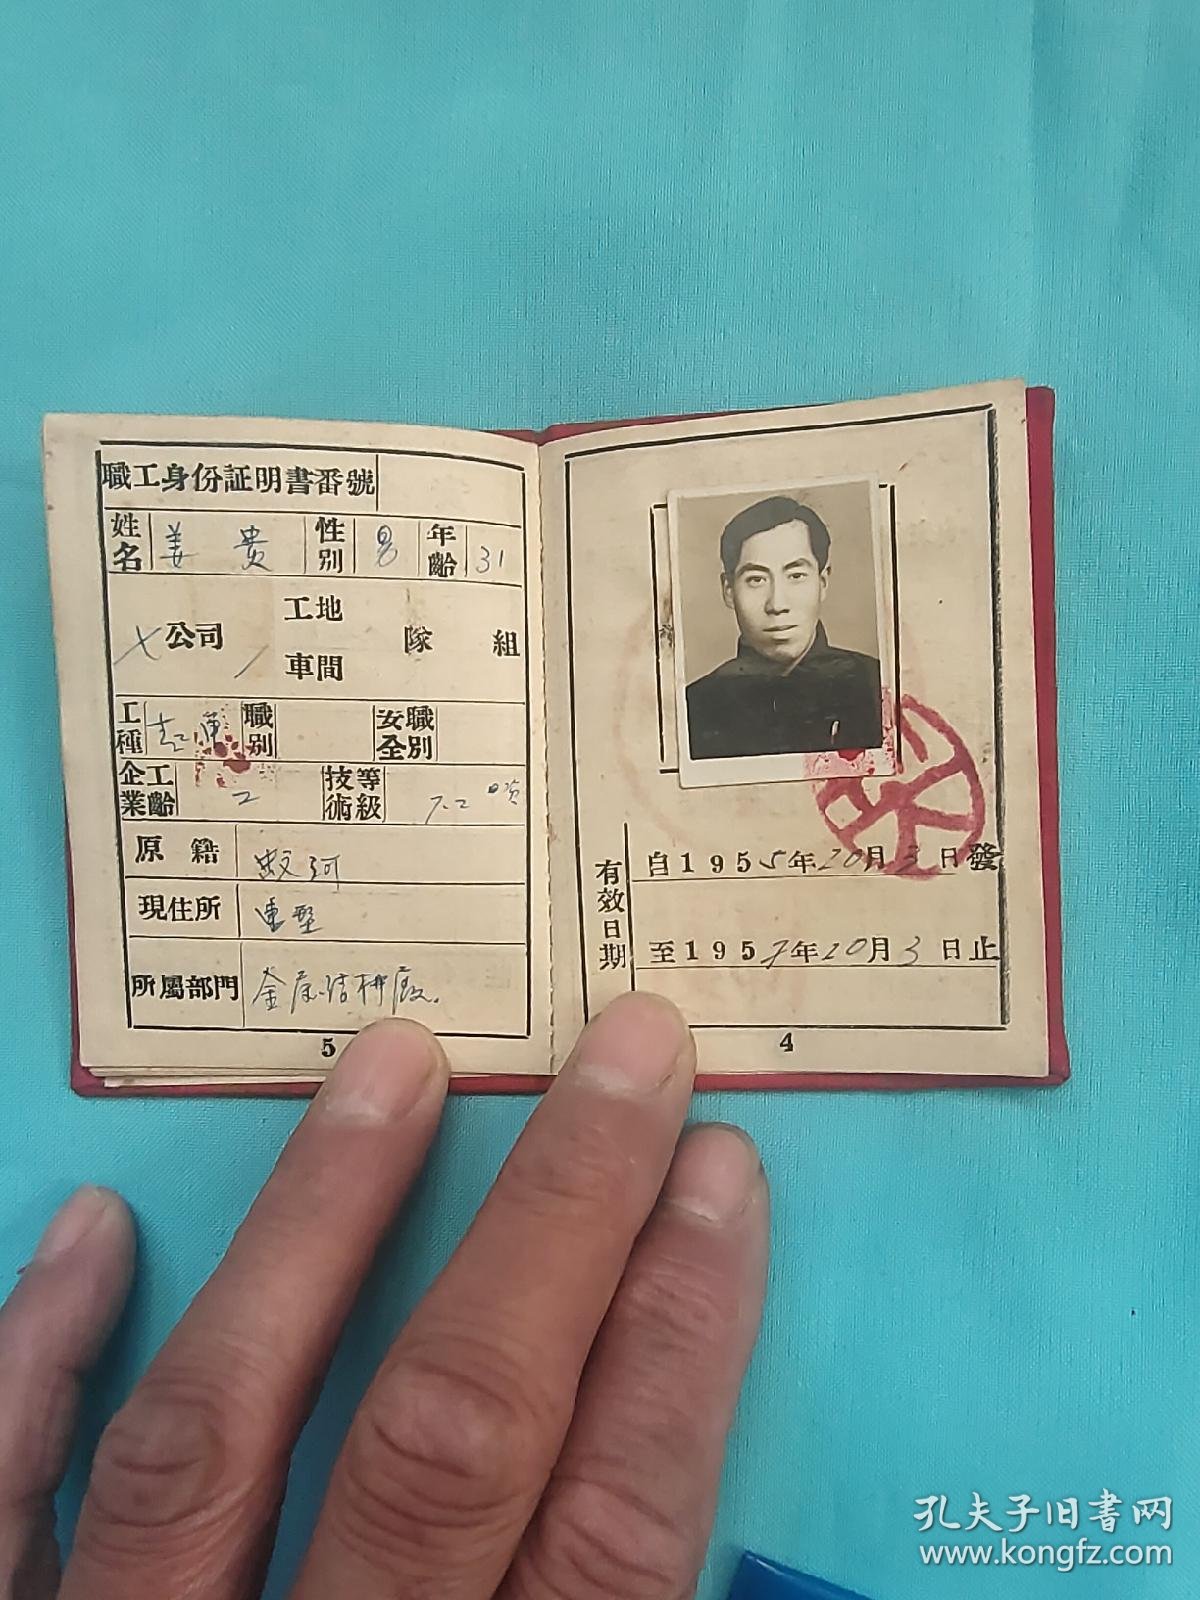 職工身份証明書番號
姓名 姜 贵 性別 男 年齡 31
公司 工地 車間 隊 組
工種 職別 安全職別
企業工齡 2 技術等級
原籍
現住所
所屬部門 金属结构厰.
5
有效日期
自1955年10月3日發
至1957年10月3日止
4
孔夫子旧书网
www.kongfz.com